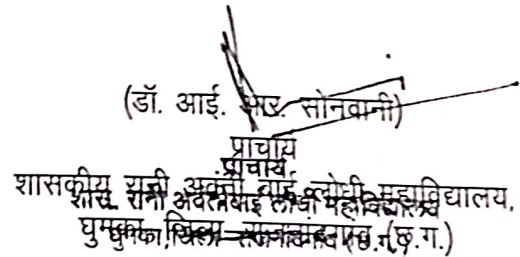 (डॉ. आई. आर. सोनवानी)
प्राचार्य
प्राचार्य
शासकीय रानी अवन्ती बाई लोधी महाविद्यालय,
शास. रानी अवन्तीबाई लोधी महाविद्यालय
घुमका, जिला राजनांदगांव (छ.ग.)
घुमका, जिला-राजनांदगांव (छ.ग.)